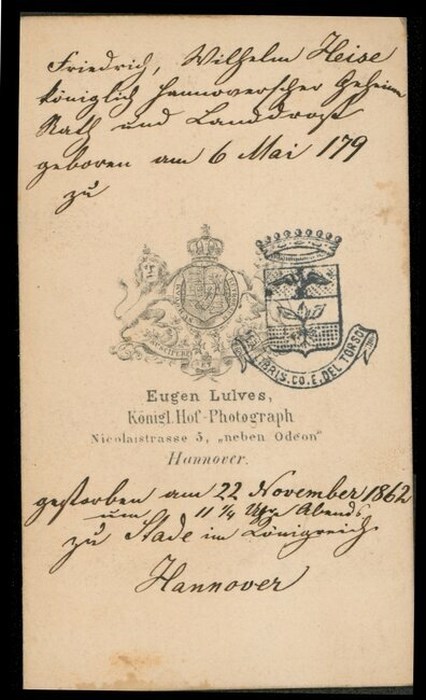 Friedrich, Wilhelm Heise
königlich hannoverscher Geheim
Rath und Landdrost
geboren am 6 Mai 179
zu
EX LIBRIS.CO.E.DEL TORSO
Eugen Lulves,
Königl. Hof-Photograph
Nicolaistrasse 5, „neben Odéon"
Hannover.
gestorben am 22 November 1862
um 11 ¼ Uhr Abends
zu Stade im Königreich
Hannover